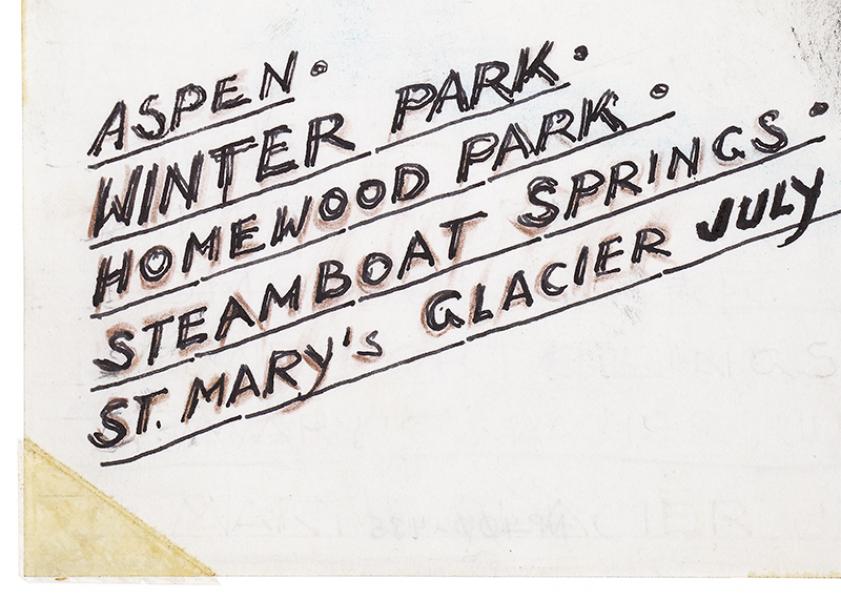 ASPEN.
WINTER PARK.
HOMEWOOD PARK.
STEAMBOAT SPRINGS.
ST. MARY'S GLACIER JULY